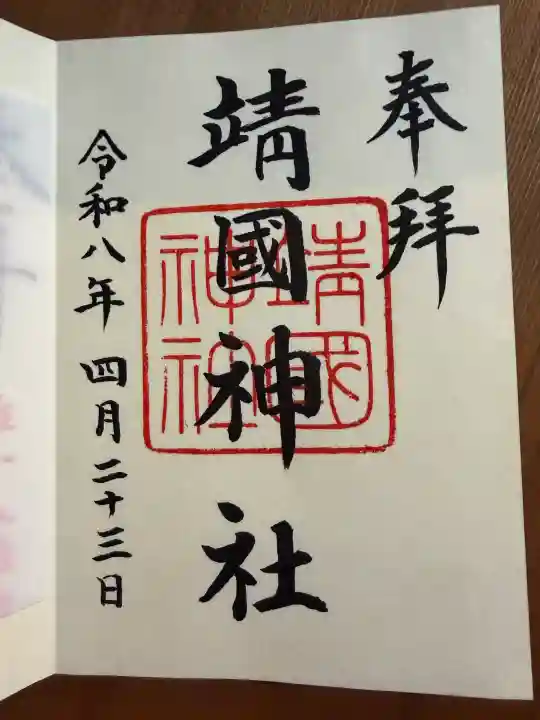 奉拜
靖國神社
靖國
神社
令和八年 四月二十三日